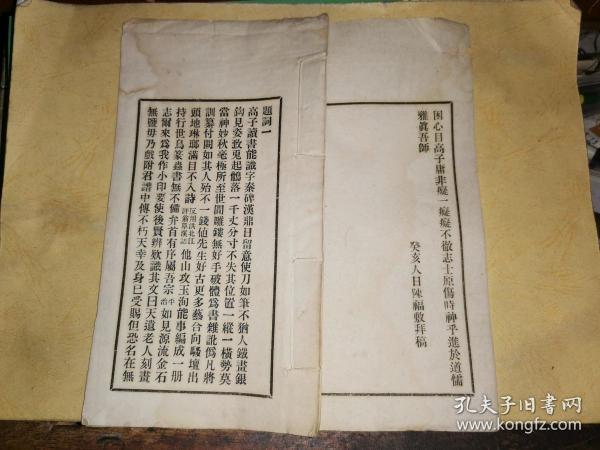 困心目高子庸非癡一癡癡不徹志士原傷時神乎進於道懦
雅眞吾師
癸亥人日陳福敷拜稿
題詞一
高子讀書能識字秦碑漢鼎日留意使刀如筆不猶人鐵畫銀
鈎見姿致兎起鶻落一千丈分寸不失其位置一縱一橫勢莫
當神妙秋毫極所至世間雕鏤無好手破體爲書雜訛僞凡將
訓纂付闕如其人殆不一錢値先生好古更多藝合向騷壇出
頭地琳瑯滿目不入詩反用洪北江評翁覃溪語他山攻玉洵能事編成一册
持行世鳥篆蟲書無不備弁首有序屬吾宗半治如見源流金石
志爾來爲我作小印要使後賢辨欵識其文曰天遺老人刻畫
無鹽毋乃戲附君譜中傳不朽天幸及身已受賜但恐名在無
孔夫子旧书网
www.kongfz.com